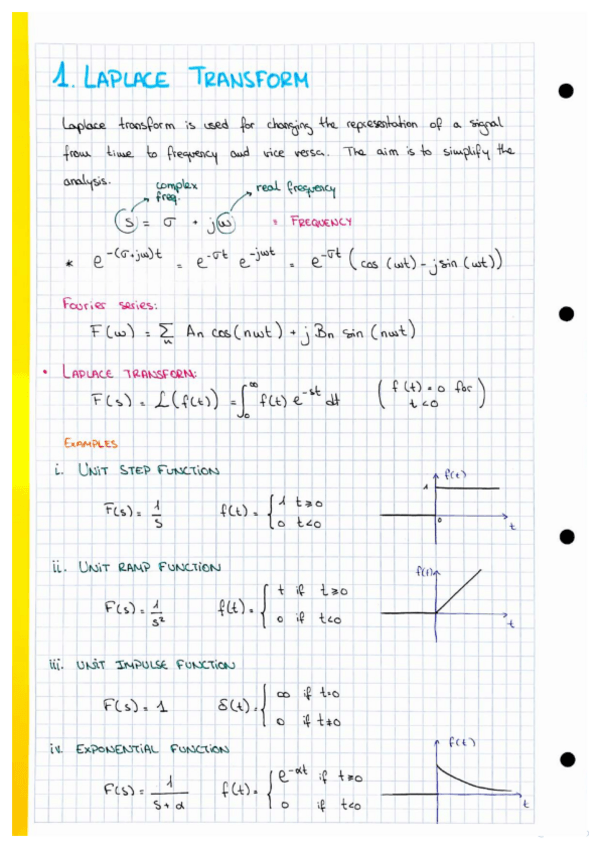 1. LAPLACE TRANSFORM
Laplace transform is used for changing the representation of a signal
from time to frequency and vice versa. The aim is to simplify the
analysis.
complex freq.
real frequency
s = σ + jω
FREQUENCY
* e^-(σ+jω)t = e^-σt e^-jωt = e^-σt (cos (ωt) - j sin (ωt))
Fourier series:
F(ω) = Σn An cos(nωt) + j Bn sin (nωt)
• LAPLACE TRANSFORM:
F(s) = L(f(t)) = ∫0^∞ f(t) e^-st dt ( f(t) = 0 for t<0 )
EXAMPLES
i. UNIT STEP FUNCTION
F(s) = 1/s f(t) = { 1 t≥0
0 t<0
f(t)
1
0
t
ii. UNIT RAMP FUNCTION
F(s) = 1/s² f(t) = { t if t≥0
0 if t<0
f(t)
t
iii. UNIT IMPULSE FUNCTION
F(s) = 1 δ(t) = { ∞ if t=0
0 if t≠0
iv. EXPONENTIAL FUNCTION
F(s) = 1/(s+α) f(t) = { e^-αt if t≥0
0 if t<0
f(t)
t